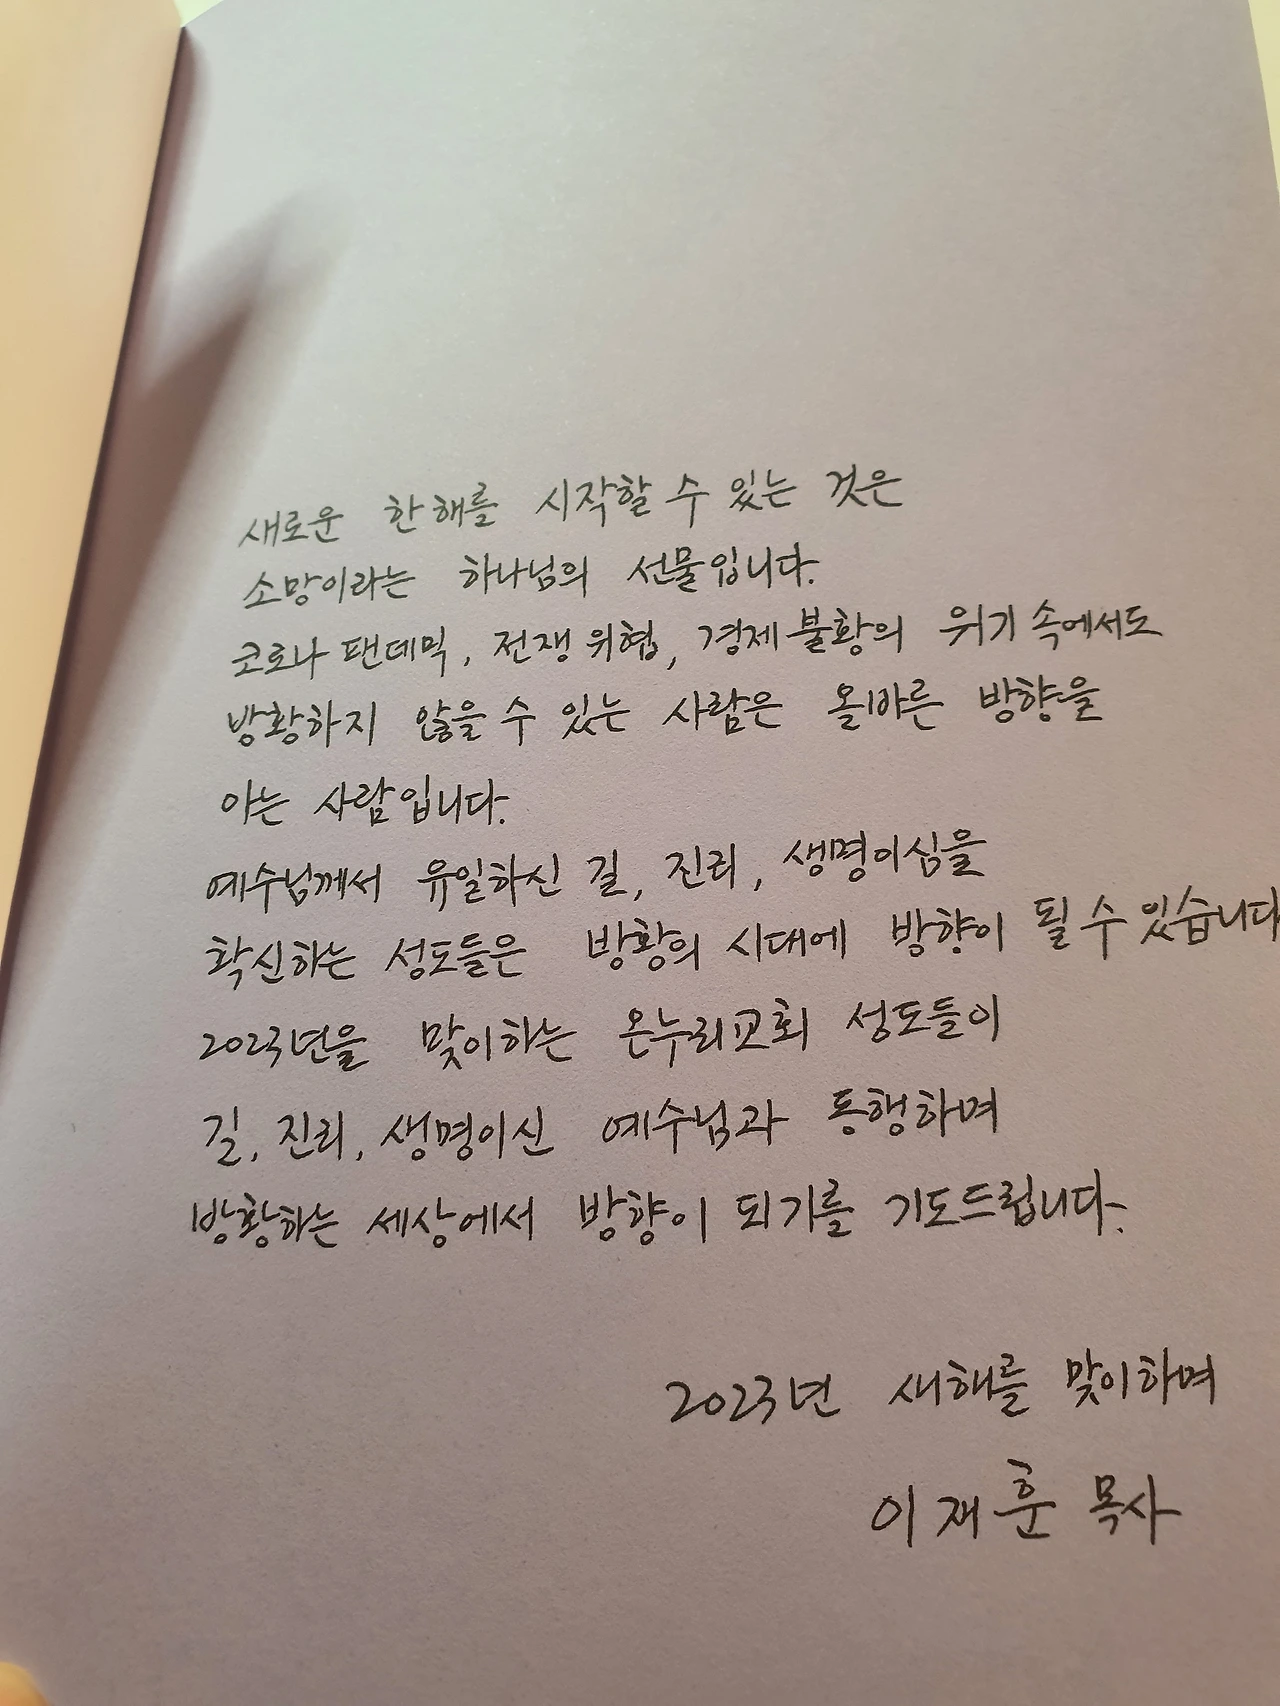 새로운 한해를 시작할 수 있는 것은
소망이라는 하나님의 선물입니다.
코로나 팬데믹, 전쟁위협, 경제불황의 위기 속에서도
방황하지 않을 수 있는 사람은 올바른 방향을
아는 사람입니다.
예수님께서 유일하신 길, 진리, 생명이심을
확신하는 성도들은 방황의 시대에 방향이 될 수 있습니다
2023년을 맞이하는 온누리교회 성도들이
길, 진리, 생명이신 예수님과 동행하며
방황하는 세상에서 방향이 되기를 기도드립니다.
2023년 새해를 맞이하며
이재훈 목사